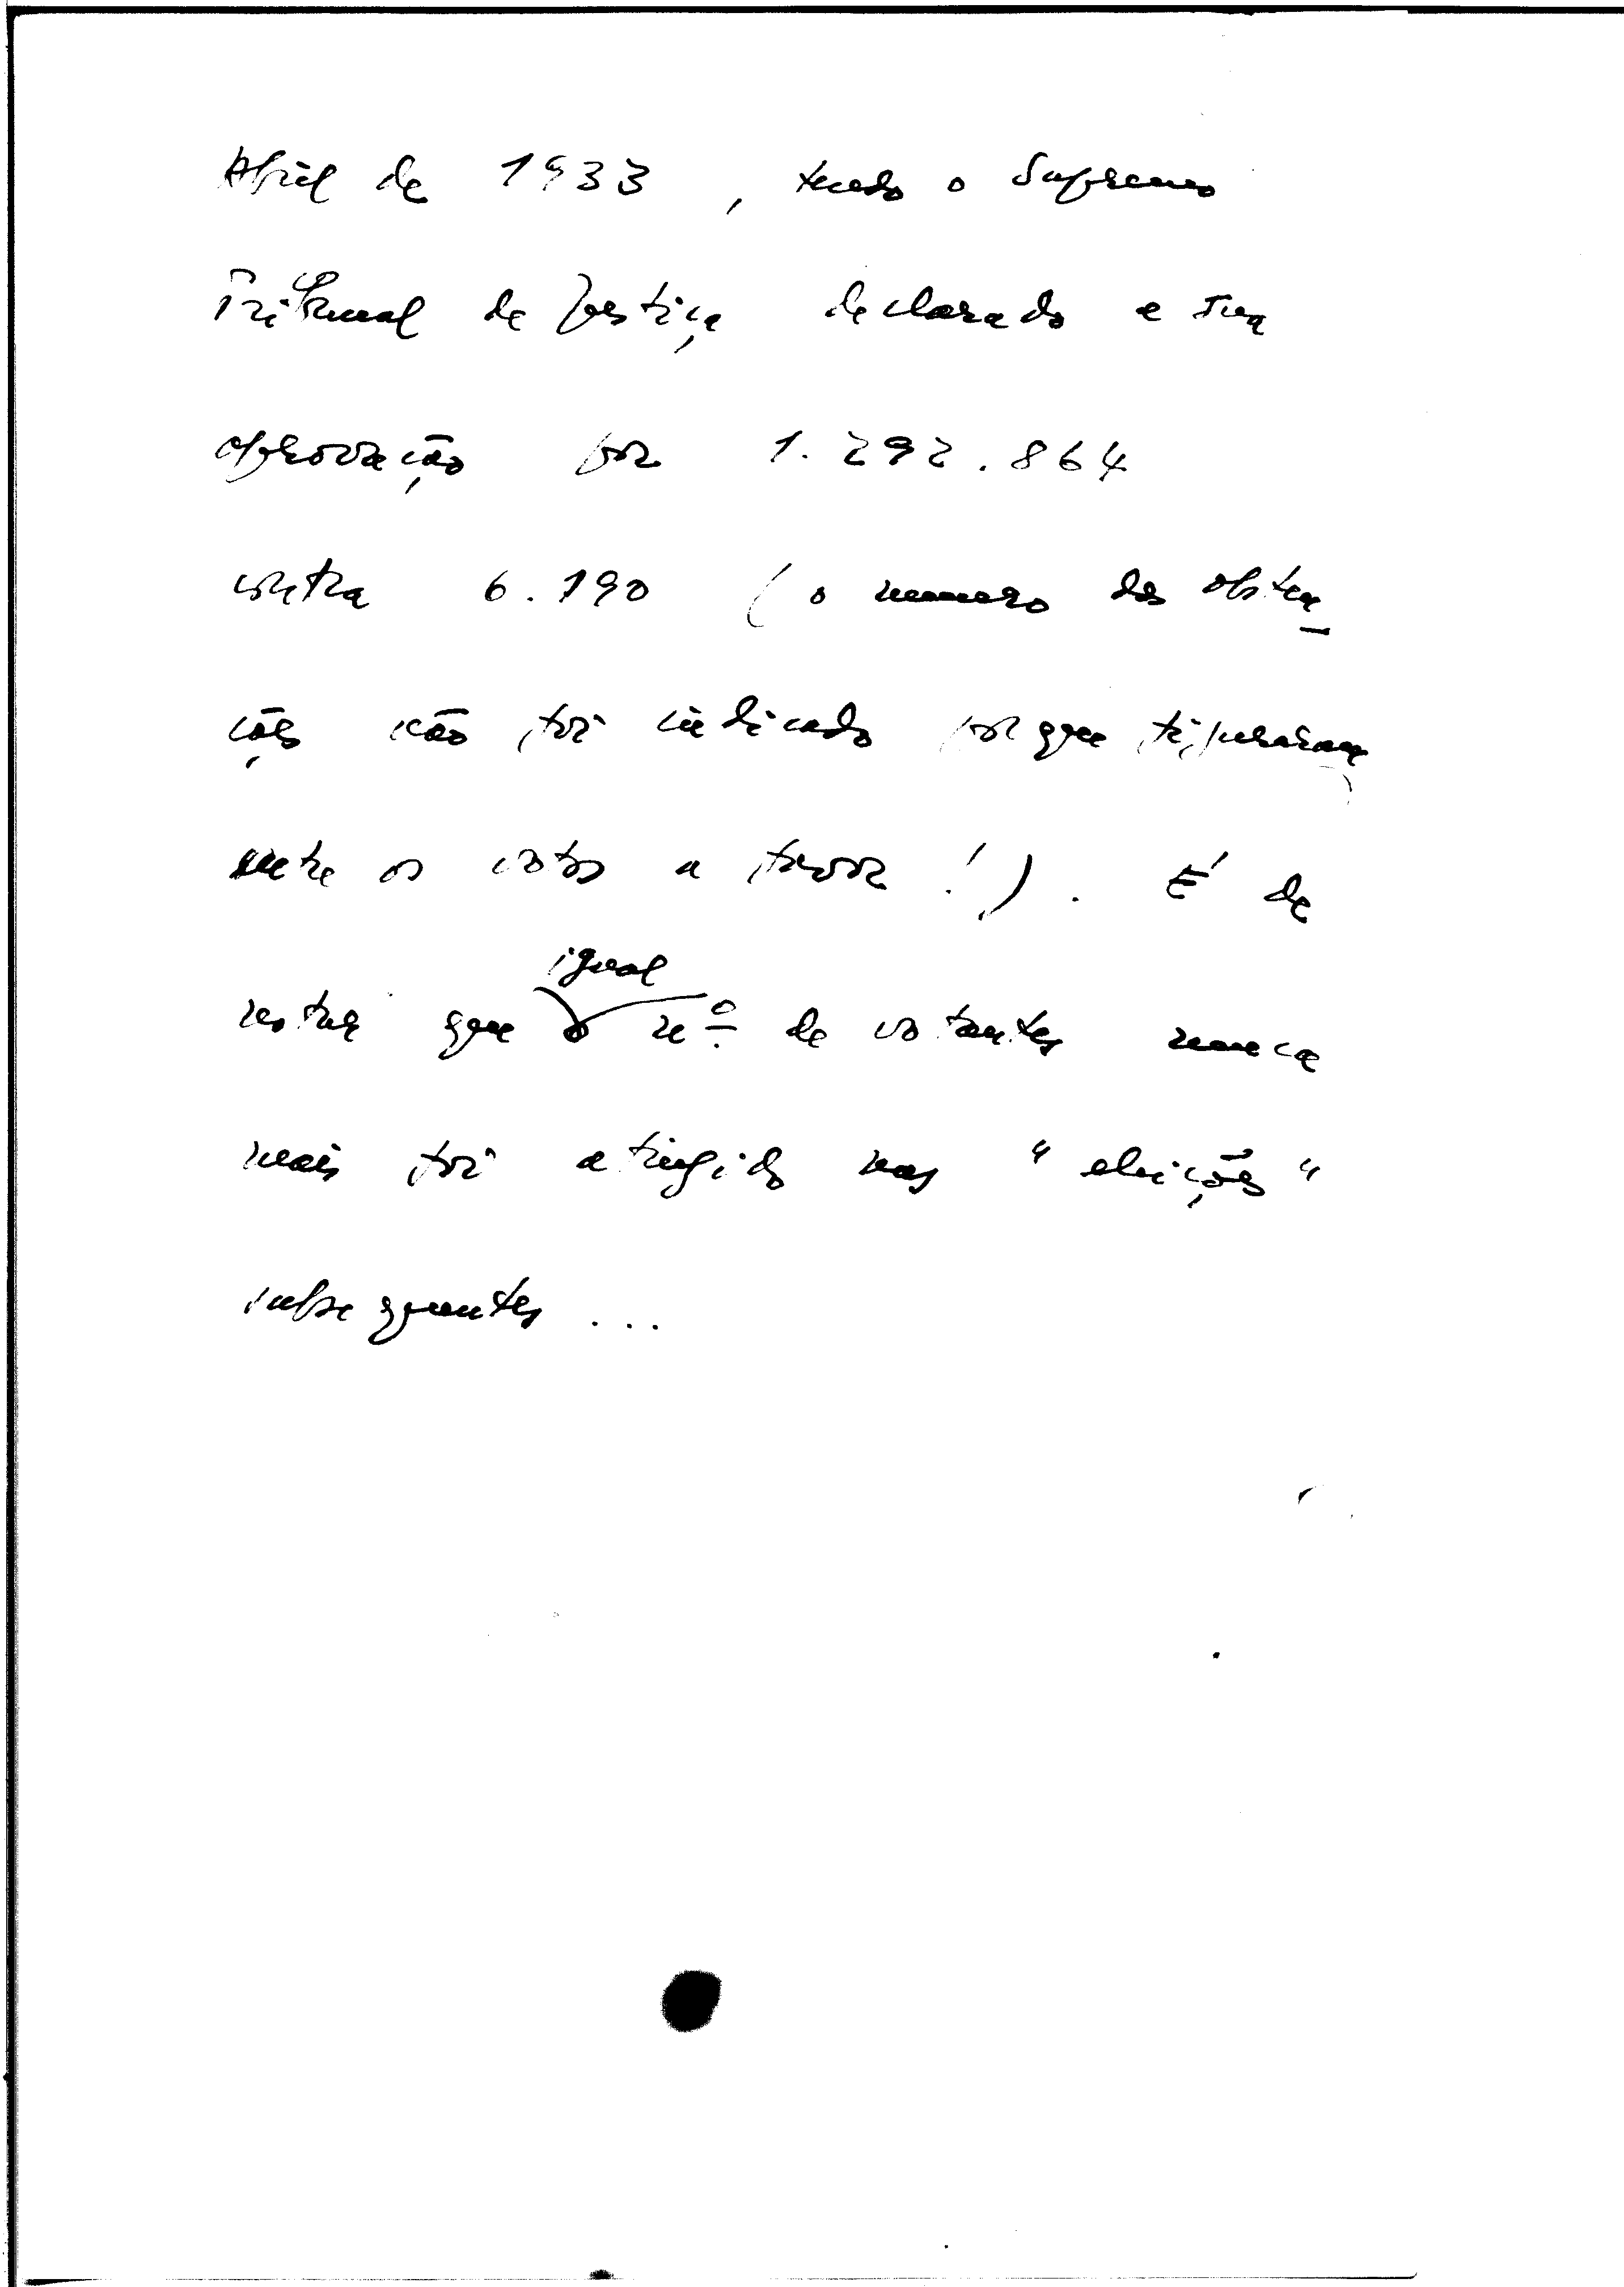 Abril de 1933, tendo o Supremo
Tribunal de Justiça declarado a sua
aprovação por 1.292.864
contra 6.190 (o numero das absten-
ções não foi indicado porque figuraram
entre os votos a favor!). É de
notar que igual nº de votantes nunca
mais foi atingido nas "eleições"
subsequentes...